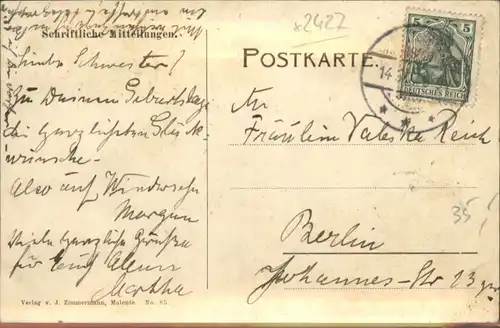 Schriftliche Mitteilungen.
Liebe Schwester!
Zu Deinem Geburtstage
die herzlichsten Glück
wünsche.
Also auf Wiedersehn
Morgen
Viele herzliche Grüße
für Euch Allen
Martha
Verlag v. J. Zimmermann, Malente. No. 85.
x2427
POSTKARTE.
5 5
DEUTSCHES REICH
14
An
Fräulein Valeska Reich
Berlin
Johannes-Str 13
35